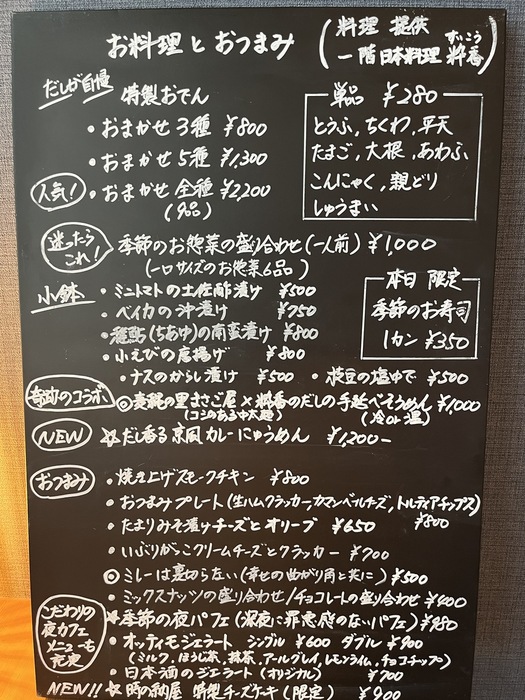 お料理とおつまみ
(料理 提供
一階日本料理 粋香)
すいこう
だしが自慢
特製おでん
・おまかせ3種 ¥800
・おまかせ5種 ¥1,300
人気!
・おまかせ全種 ¥2,200
(9品)
単品 ¥280
とうふ,ちくわ,平天
たまご,大根,あわふ
こんにゃく,親どり
しゅうまい
迷ったらこれ!
季節のお惣菜の盛り合わせ(一人前) ¥1,000
(一口サイズのお惣菜6品)
小鉢
・ミニトマトの土佐酢漬け ¥500
・ベイカの沖漬け ¥750
・稚鮎(ちあゆ)の南蛮漬け ¥800
・小えびの唐揚げ ¥800
本日 限定
季節のお寿司
1カン ¥350
・ナスのからし漬け ¥500 ・枝豆の塩ゆで ¥500
奇跡のコラボ
◎ 麺の里まさご屋×粋香のだしの手延べそうめん ¥1,000
(コシのある中太麺) (冷or温)
NEW
☆だし香る京風カレーにゅうめん ¥1,200-
おつまみ
・焼き上げスモークチキン ¥800
・おつまみプレート(生ハムクラッカー,カマンベールチーズ,トルティアチップス)
¥800
・たまりみそ漬けチーズとオリーブ ¥650
・いぶりがっこクリームチーズとクラッカー ¥700
◎ミレーは裏切らない(幸せの曲がり角と共に) ¥500
・ミックスナッツの盛り合わせ/チョコレートの盛り合わせ ¥400
こだわりの
夜カフェ
メニューも
充実
★季節の夜パフェ(深夜に罪悪感のないパフェ) ¥980
・オッティモジェラート シングル ¥600 ダブル ¥900
(ミルク,ほうじ茶,抹茶,アールグレイ,レモンライム,チョコチップ)
・日本酒のジェラート(オリジナル) ¥700
NEW!! ☆時の納屋 特製チーズケーキ(限定) ¥900